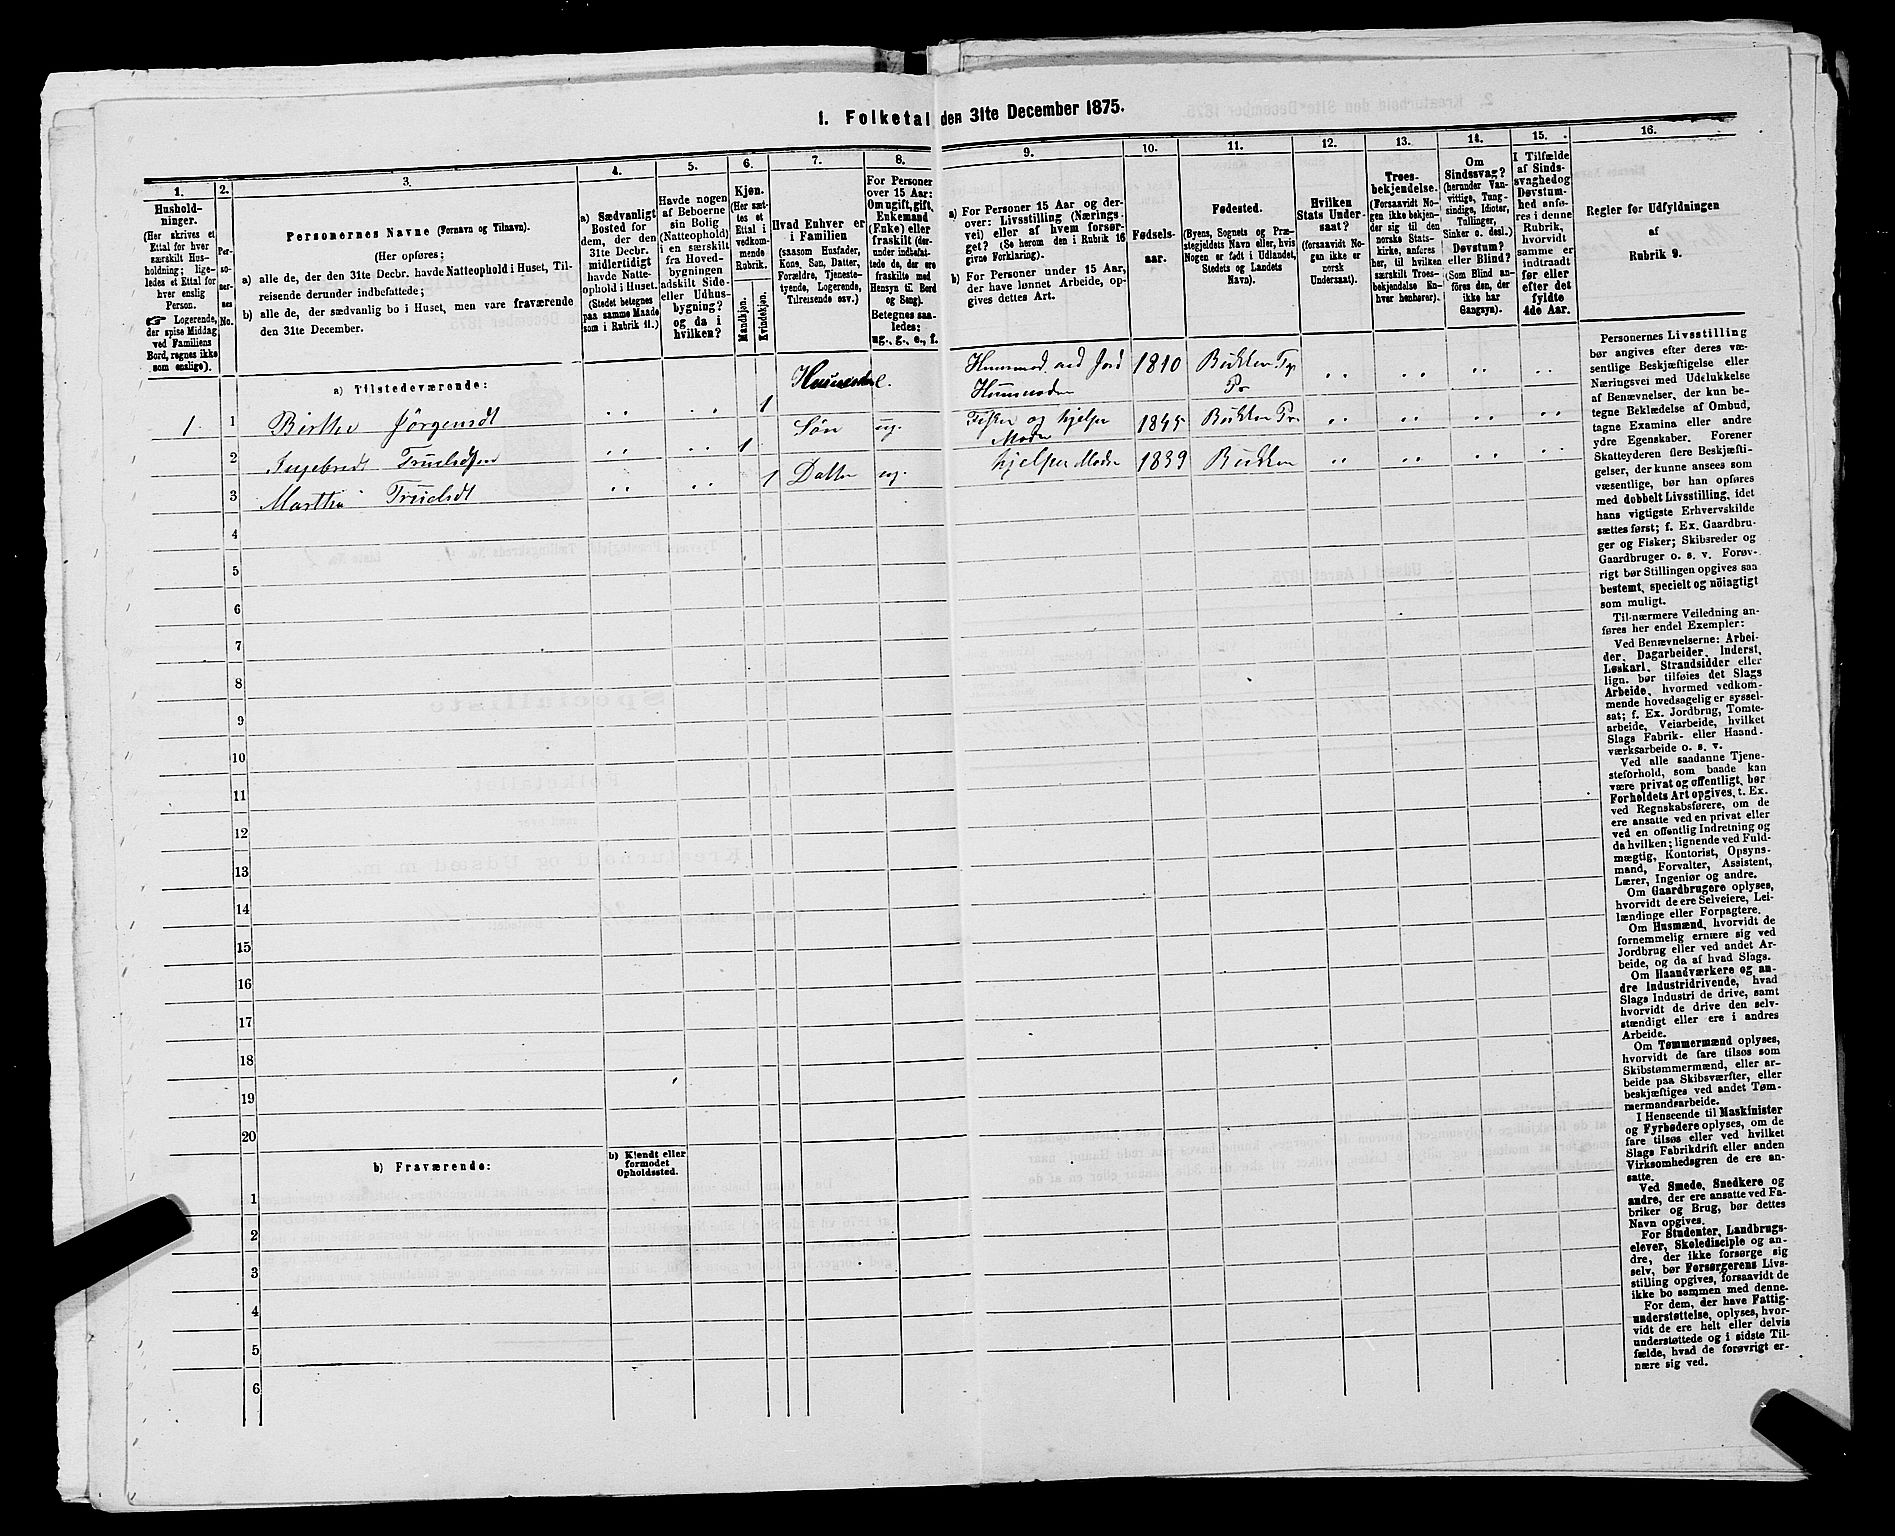 1. Folketal den 31te December 1875.
1.
2.
3.
4.
5.
6.
7.
8.
9.
10.
11.
12.
13.
14.
15.
16.
Hushold-
ninger.
(Her skrives et
Ettal for hver
særskilt Hus-
holdning; lige-
ledes et Ettal for
hver enslig
Person.
☞ Logerende,
der spise Middag
ved Familiens
Bord, regnes ikke
som enslige).
Per-
so-
ner-
nes
No.
Personernes Navne (Fornavn og Tilnavn).
(Her opføres:
a) alle de, der den 31te Decbr. havde Natteophold i Huset, Til-
reisende derunder indbefattede;
b) alle de, der sædvanlig bo i Huset, men vare fraværende
den 31te December.
a) Sædvanligt
Bosted for
dem, der den
31te Decbr.
midlertidigt
havde Natte-
ophold i Huset.
(Stedet betegnes
paa samme Maade
som i Rubrik 11.)
Havde nogen
af Beboerne
sin Bolig
(Natteophold)
i en særskilt
fra Hoved-
bygningen
adskilt Side-
eller Udhus-
bygning?
og da i
hvilken?
Kjøn.
(Her sæt-
tes et
Ettal i
vedkom-
mende
Rubrik.
Mandkjøn.
Kvindekjøn.
Hvad Enhver er
i Familien
(saasom Husfader,
Kone, Søn, Datter,
Forældre, Tjeneste-
tyende, Logerende,
Tilreisende osv.)
For Personer
over 15 Aar:
Om ugift, gift,
Enkemand
(Enke) eller
fraskilt (der-
under indbefat-
tede de, der ere
fraskilte med
Hensyn til Bord
og Seng).
Betegnes saa-
ledes:
ug., g., e., f.
a) For Personer 15 Aar og der-
over: Livsstilling (Nærings-
vei) eller af hvem forsør-
get? (Se herom den i Rubrik 16
givne Forklaring).
b) For Personer under 15 Aar,
der have lønnet Arbeide, op-
gives dettes Art.
Fødsels-
aar.
Fødested.
(Byens, Sognets og Præ-
stegjeldets Navn eller, hvis
Nogen er født i Udlandet,
Stedets og Landets
Navn).
Hvilken
Stats Under-
saat?
(forsaavidt No-
gen ikke er
norsk
Undersaat).
Troes-
bekjendelse.
(Forsaavidt No-
gen ikke bekjen-
der sig til den
norske Stats-
kirke, anføres
her, til hvilken
særskilt Troes-
bekjendelse En-
hver henhører).
Om
Sindssvag?
(herunder Van-
vittige, Tung-
sindige, Idioter,
Tullinger,
Sinker o. desl.)
Døvstum?
eller Blind?
(Som Blind an-
føres den, der
ikke har
Gangsyn).
I Tilfælde
af Sinds-
svaghed og
Døvstum-
hed anfø-
res i denne
Rubrik,
hvorvidt
samme er
indtraadt
før eller
efter det
fyldte
4de Aar.
Regler for Udfyldningen
af
Rubrik 9.
a) Tilstedeværende:
1. 1 Birthe Jørgensdt 1 e. Huusmod. ved Jord 1810 Bukken Tp
Pr
2 Ingebret Truelssen 1 Søn ug. Fisker og hjelper 1845 Bukken Pr.
Moder
3 Martha Truelsdt 1 Datter ug. hjelper Moder 1839 Bukken
4
5
6
7
8
9
10
11
12
13
14
15
16
17
18
19
20
b) Fraværende:
b) Kjendt eller
formodet
Opholdssted.
1
2
3
4
5
6
Personernes Livsstilling
bør angives efter deres væ-
sentlige Beskjæftigelse eller
Næringsvei med Udelukkelse
af Benævnelser, der kun be-
tegne Beklædelse af Ombud,
tagne Examina eller andre
ydre Egenskaber. Forener
Skatteyderen flere Beskjæfti-
gelser, der kunne ansees som
væsentlige, bør han opføres
med dobbelt Livsstilling, idet
hans vigtigste Erhvervskilde
sættes først; f. Ex. Gaardbru-
ger og Fisker; Skibsreder og
Gaardbruger o. s. v. Forøv-
rigt bør Stillingen opgives saa
bestemt, specielt og nöiagtigt
som muligt.
Til nærmere Veiledning an-
føres her endel Exempler:
Ved Benævnelserne: Arbei-
der, Dagarbeider, Inderst,
Løskarl, Strandsidder eller
lign. bør tilføies det Slags
Arbeide, hvormed vedkom-
mende hovedsagelig er syssel-
sat; f. Ex. Jordbrug, Tomte-
arbeide, Veiarbeide, hvilket
Slags Fabrik- eller Haand-
værksarbeide o. s. v.
Ved alle saadanne Tjene-
steforhold, som baade kan
være privat og offentligt, bør
Forholdets Art opgives, t. Ex.
ved Regnskabsførere, om de
ere ansatte ved en privat eller
ved en offentlig Indretning og
da hvilken; lignende ved Fuld-
mægtig, Kontorist, Opsyns-
mand, Forvalter, Assistent,
Lærer, Ingeniør og andre.
Om Gaardbrugere oplyses,
hvorvidt de ere Selveiere, Lei-
lændinge eller Forpagtere.
Om Husmænd, hvorvidt de
fornemmelig ernære sig ved
Jordbrug eller ved andet Ar-
beide, og da af hvad Slags.
Om Haandværkere og an-
dre Industridrivende, hvad
Slags Industri de drive, samt
hvorvidt de drive den selv-
stændigt eller ere i andres
Arbeide.
Om Tømmermænd oplyses,
hvorvidt de fare tilsøs som
Skibstømmermænd, eller ar-
beide paa Skibsværfter, eller
beskjæftiges ved andet Tøm-
mermandsarbeide.
I Henseende til Maskinister
og Fyrbødere oplyses, om de
fare tilsøs eller ved hvilket
Slags Fabrikdrift eller anden
Virksomhedsgren de ere an-
satte.
Ved Smede, Snedkere og
andre, der ere ansatte ved Fa-
briker og Brug, bør dettes
Navn opgives.
For Studenter, Landbrugs-
elever, Skoledisciple og an-
dre, der ikke forsørge sig
selv, bør Forsørgerens Livs-
stilling opgives, forsaavidt de
ikke bo sammen med denne.
For dem, der have Fattig-
understøttelse, oplyses, hvor-
vidt de ere helt eller delvis
understøttede og i sidste Til-
fælde, hvad de forøvrigt er-
nære sig ved.